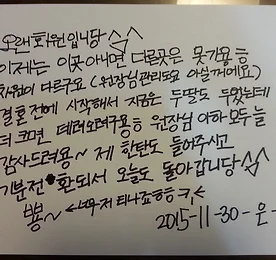 오랜 회원입니당
이제는 이곳 아니면 다른곳은 못가용ㅎ
차원이 다르구요 (원장님 관리도요 아실꺼에요)
결혼전에 시작해서 지금은 두딸도 두었는데
더 크면 데려오려구용ㅎ 원장님 이하 모두 늘
감사드려용~ 제 한탄도 들어주시고
기분전환되서 오늘도 돌아갑니당
뿅~ ←너무 저 티나죠ㅎㅎ ㅋ
2015-11-30-은-